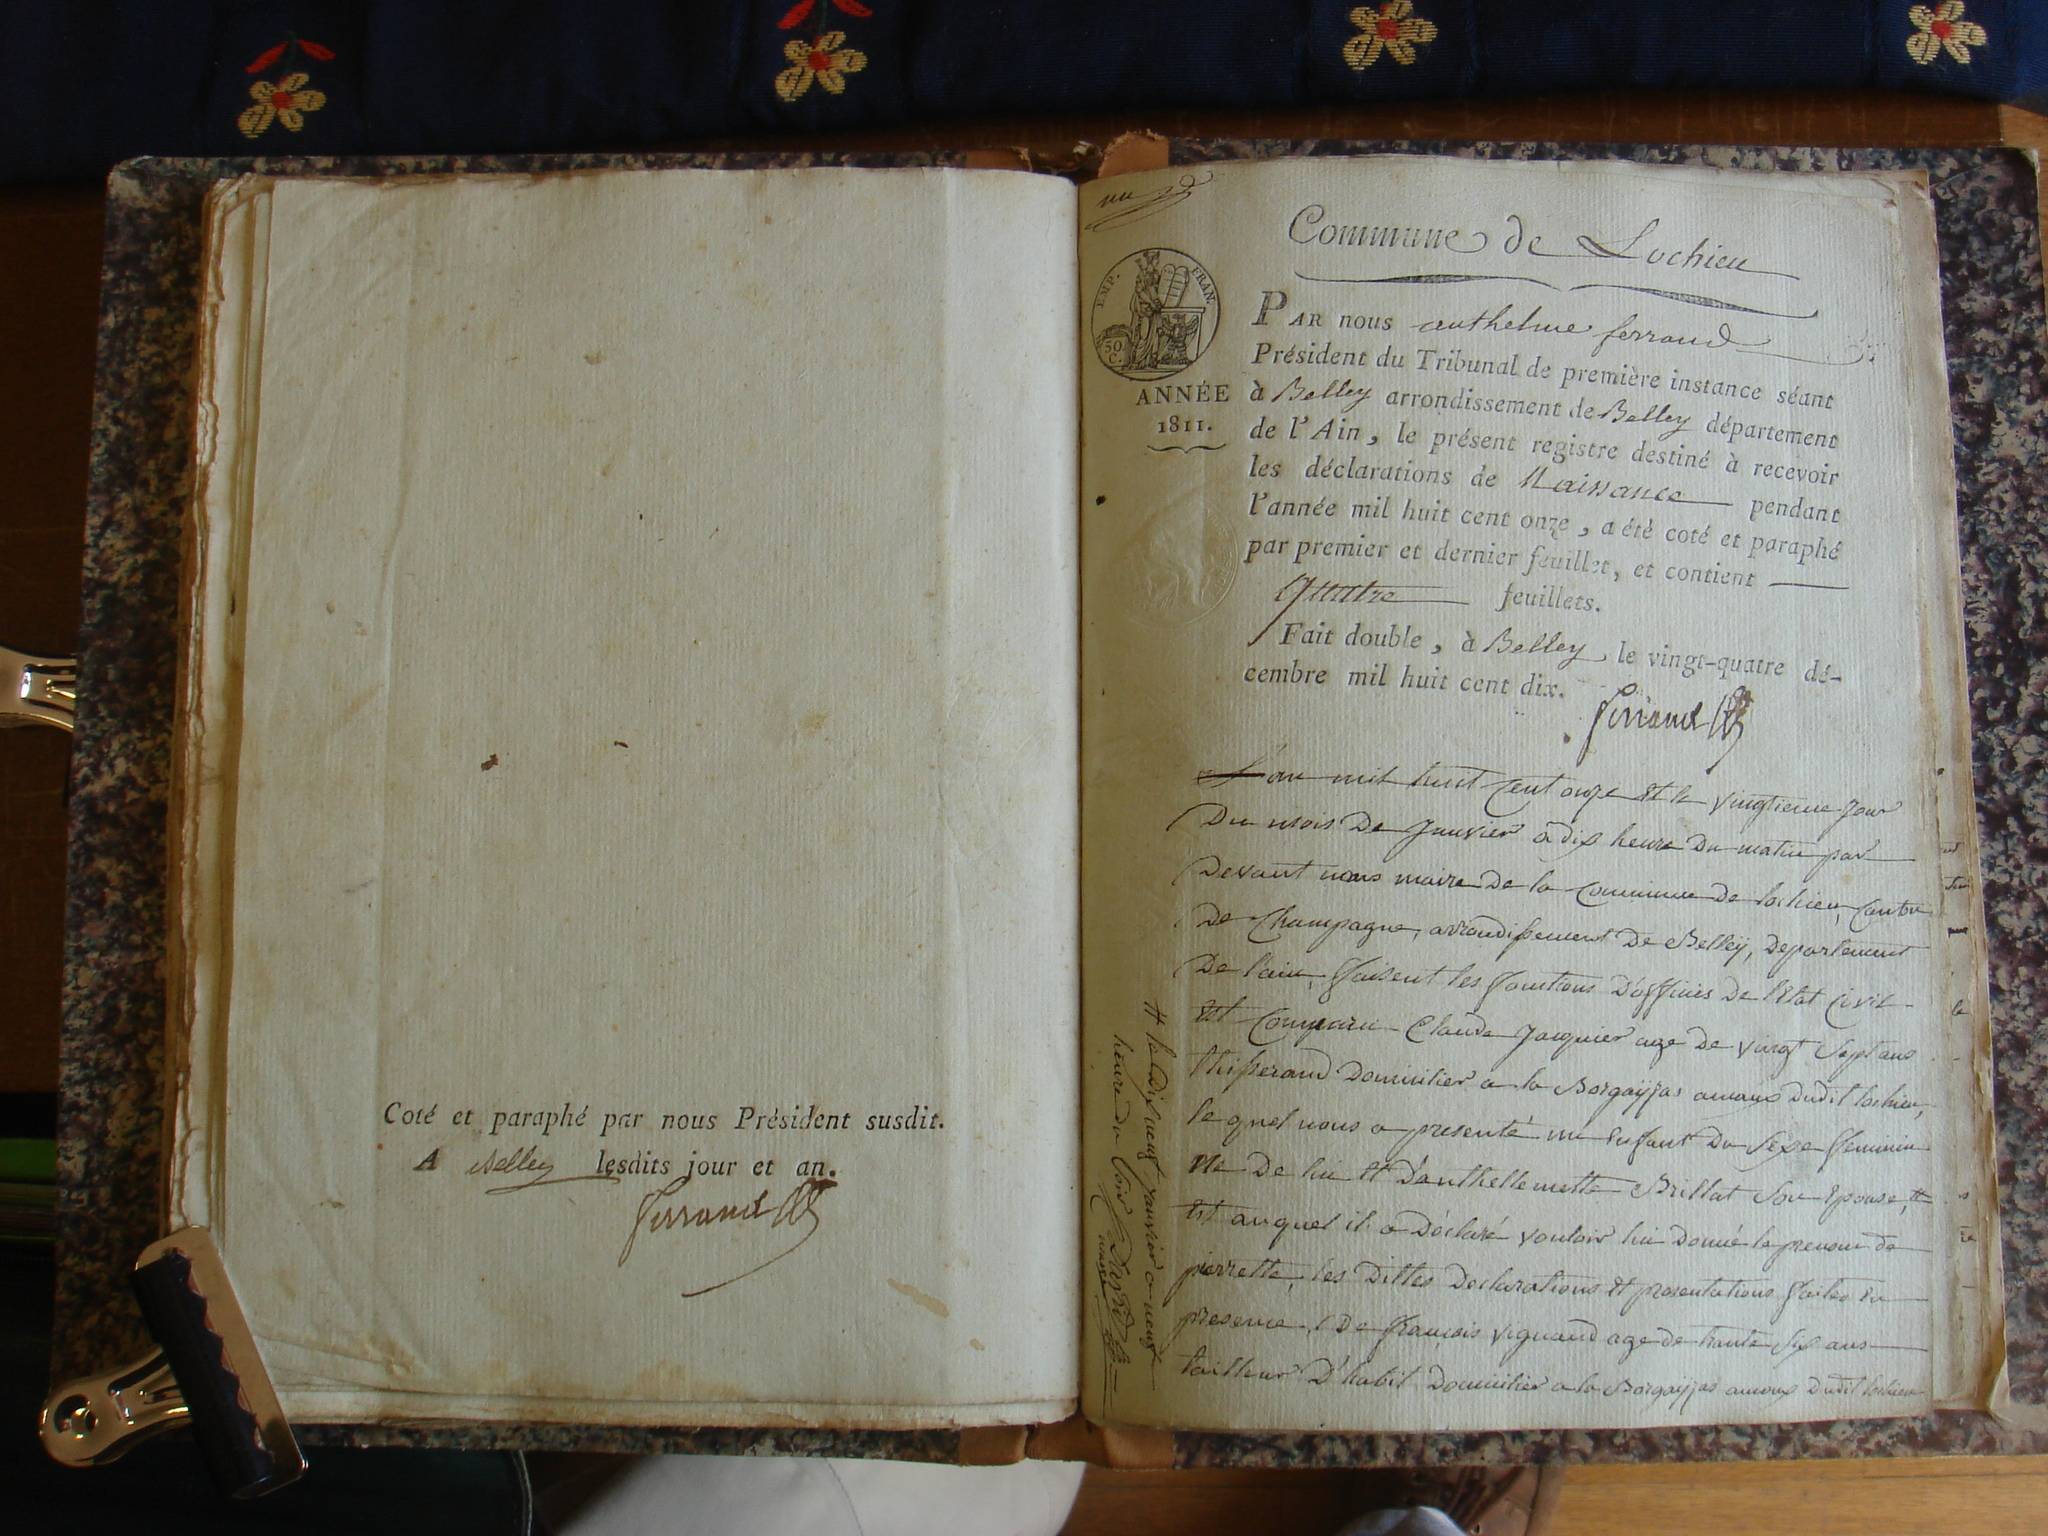 Coté et paraphé par nous Président susdit.
A Belley lesdits jour et an.
Ferrand
Commune de Lochieu
EMP. FRAN.
50 C.
ANNÉE
1811.
PAR nous anthelme ferrand
Président du Tribunal de première instance séant
à Belley arrondissement de Belley département
de l'Ain, le présent registre destiné à recevoir
les déclarations de Naissance pendant
l'année mil huit cent onze, a été coté et paraphé
par premier et dernier feuillet, et contient
quatre feuillets.
Fait double, à Belley, le vingt-quatre dé-
cembre mil huit cent dix.
Ferrand
L'an mil huit Cent onze et le vingtieme jour
Du mois De Janvier a dix heure Du matin par
Devant nous maire De la Commune De lochieu, Canton
De Champagne, arrondissement De Belleÿ, Departement
De l'ain, faisent les fonctions D'officies De l'Etat Civil
Est Comparu Claude Jacquier age De vingt Sept ans
tisserand Domicilier a la Dudit lochieu,
le quel nous a presenté un Enfant Du Sexe feminin
né De lui et D'anthellemette Brillat Son Epouse, #
Et auquel il a Déclaré vouloir lui Donné le prenom de
pierrette, les Dittes Declarations et presentations faites En
presence, De françois vignand age de trente Six ans
tailleur D'habit Domicilier a la Dudit lochieu
# le Dix neuf Janvier a neuf
heure du Soir